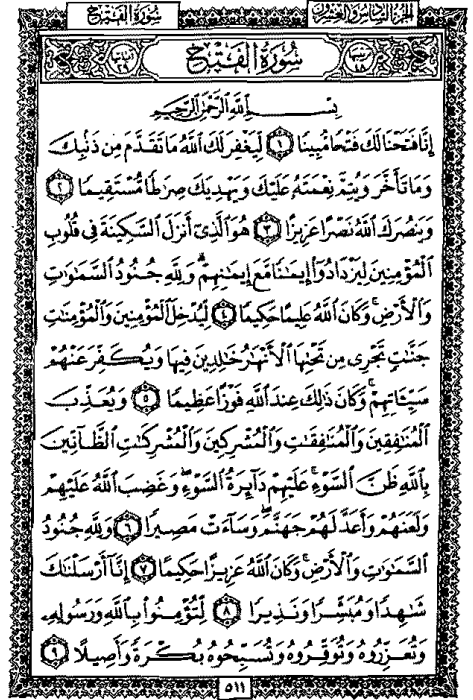 سُورَةُ الفَتْحِ
الجزء السادس والعشرون
آياتها ٢٩
سُورَةُ الفَتْحِ
ترتيبها ٤٨
بِسْمِ ٱللَّهِ ٱلرَّحْمَٰنِ ٱلرَّحِيمِ
إِنَّا فَتَحْنَا لَكَ فَتْحًا مُّبِينًا ١ لِّيَغْفِرَ لَكَ ٱللَّهُ مَا تَقَدَّمَ مِن ذَنۢبِكَ
وَمَا تَأَخَّرَ وَيُتِمَّ نِعْمَتَهُۥ عَلَيْكَ وَيَهْدِيَكَ صِرَٰطًا مُّسْتَقِيمًا ٢
وَيَنصُرَكَ ٱللَّهُ نَصْرًا عَزِيزًا ٣ هُوَ ٱلَّذِىٓ أَنزَلَ ٱلسَّكِينَةَ فِى قُلُوبِ
ٱلْمُؤْمِنِينَ لِيَزْدَادُوٓا۟ إِيمَٰنًا مَّعَ إِيمَٰنِهِمْ ۗ وَلِلَّهِ جُنُودُ ٱلسَّمَٰوَٰتِ
وَٱلْأَرْضِ ۚ وَكَانَ ٱللَّهُ عَلِيمًا حَكِيمًا ٤ لِّيُدْخِلَ ٱلْمُؤْمِنِينَ وَٱلْمُؤْمِنَٰتِ
جَنَّٰتٍ تَجْرِى مِن تَحْتِهَا ٱلْأَنْهَٰرُ خَٰلِدِينَ فِيهَا وَيُكَفِّرَ عَنْهُمْ
سَيِّـَٔاتِهِمْ ۚ وَكَانَ ذَٰلِكَ عِندَ ٱللَّهِ فَوْزًا عَظِيمًا ٥ وَيُعَذِّبَ
ٱلْمُنَٰفِقِينَ وَٱلْمُنَٰفِقَٰتِ وَٱلْمُشْرِكِينَ وَٱلْمُشْرِكَٰتِ ٱلظَّآنِّينَ
بِٱللَّهِ ظَنَّ ٱلسَّوْءِ ۚ عَلَيْهِمْ دَآئِرَةُ ٱلسَّوْءِ ۖ وَغَضِبَ ٱللَّهُ عَلَيْهِمْ
وَلَعَنَهُمْ وَأَعَدَّ لَهُمْ جَهَنَّمَ ۖ وَسَآءَتْ مَصِيرًا ٦ وَلِلَّهِ جُنُودُ
ٱلسَّمَٰوَٰتِ وَٱلْأَرْضِ ۚ وَكَانَ ٱللَّهُ عَزِيزًا حَكِيمًا ٧ إِنَّآ أَرْسَلْنَٰكَ
شَٰهِدًا وَمُبَشِّرًا وَنَذِيرًا ٨ لِّتُؤْمِنُوا۟ بِٱللَّهِ وَرَسُولِهِۦ
وَتُعَزِّرُوهُ وَتُوَقِّرُوهُ وَتُسَبِّحُوهُ بُكْرَةً وَأَصِيلًا ٩
٥١١